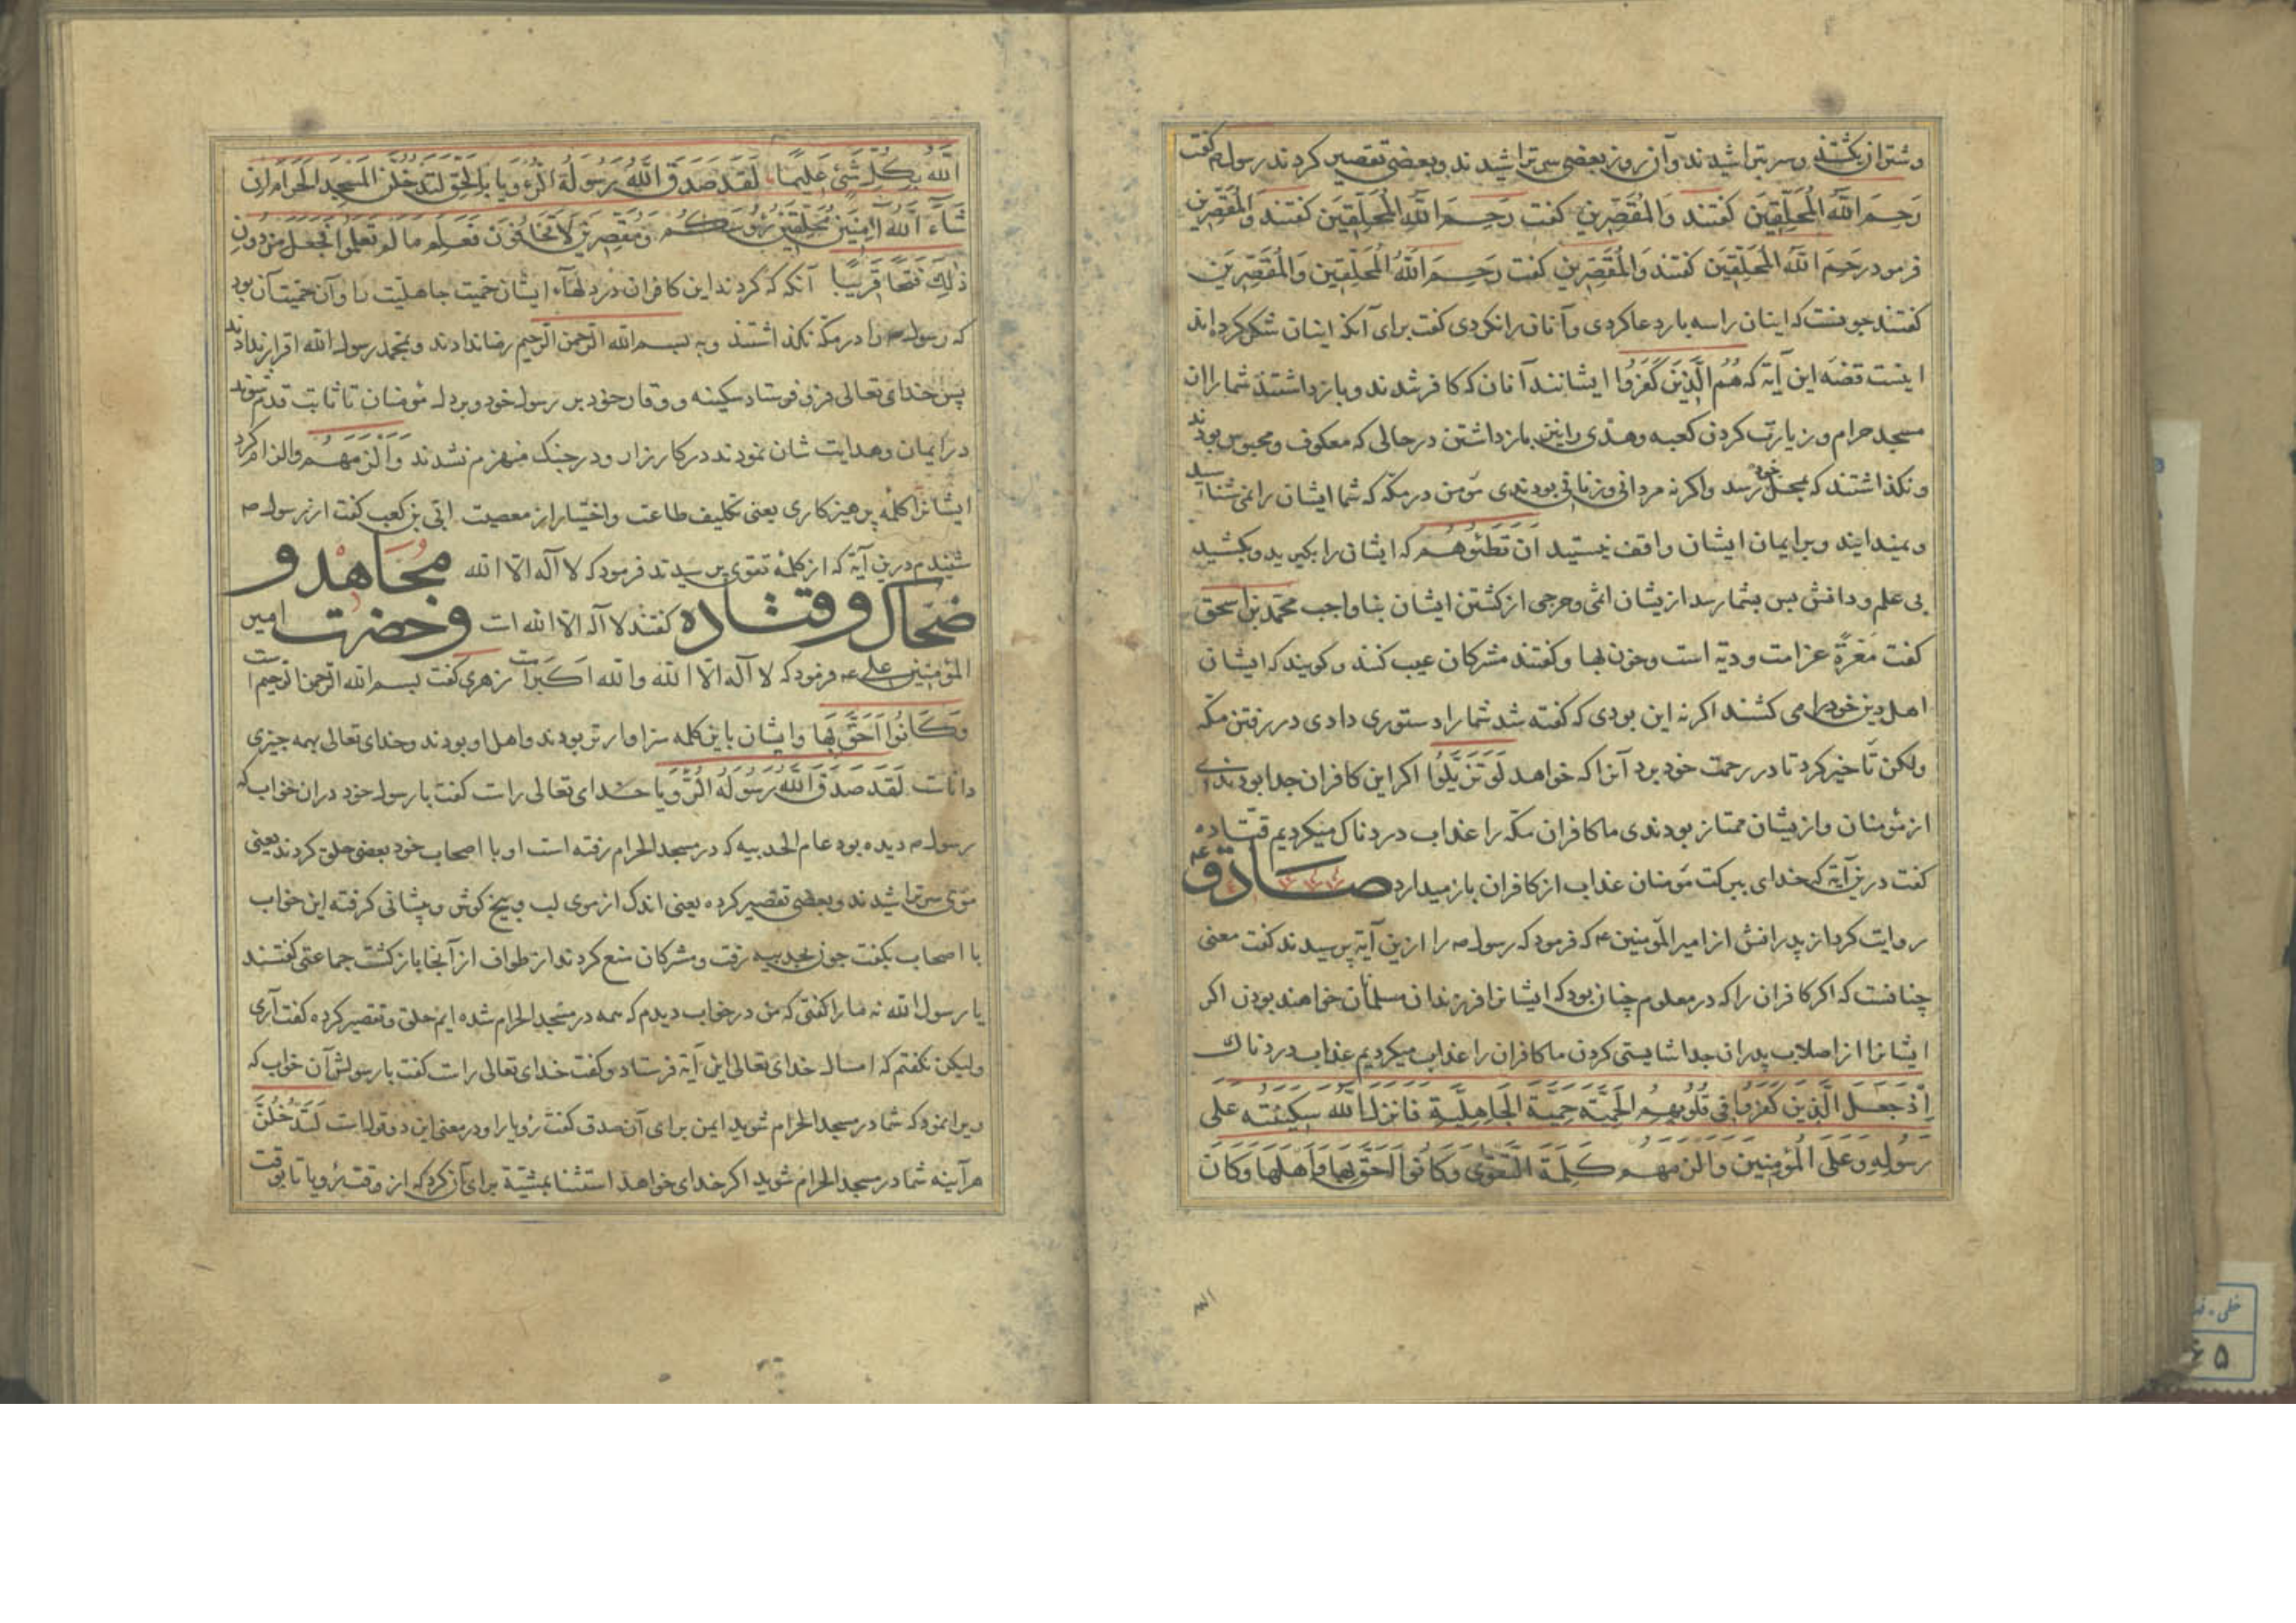 وشتران بکشتند وسر بتراشیدند وآن روز بعضی سر تراشیدند وبعضی تقصیر کردند رسول ص گفت
رَحِمَ اللّٰه المُحَلِّقِینَ کفتند وَالمُقَصِّرِینِ کفت رَحِمَ اللّٰه المُحَلِّقِینَ کفتند وَالمُقَصِّرِینِ
فرمود رَحِمَ اللّٰه المُحَلِّقِینَ کفتند وَالمُقَصِّرِینِ کفت رَحِمَ اللّٰهُ المُحَلِّقِینَ وَالمُقَصِّرِینَ
کفتند چونست که اینان را سه بار دعا کردی وآنان را نکردی کفت برای آنکه اینان شک نکرده اند
اینست قصّه این آیة که هُمُ الَّذِینَ کَفَرُوا ایشانند آنان که کافر شدند وباز داشتند شما را ان
مسجد حرام وزیارت کردن کعبه وهدی را نیز باز داشتن در حالی که معکوف ومحبوس بودند
ونکذاشتند که بمحل خود رسد واکر نه مردانی وزنانی بودندی مؤمن در مکه که شما ایشان را نمی شناسید
ونمیدانید وبر ایمان ایشان واقف نیستید ان تَطَئُوهُم که ایشان را بکیرید وبکشید
بی علم ودانش پس بشما رسد از یشان اثمی وحرجی از کشتن ایشان بناواجب محمّد بن اسحق
کفت مَعَرَّة غرامت ودیة است وخون بها وکفتند مشرکان عیب کنند وکویند که ایشان
اهل دین خود را می کشند اکر نه این بودی که کفته شد شما را دستوری دادی در رفتن مکّه
ولکن تاخیر کرد تا در رحمت خود برد آنرا که خواهد لَوْ تَزَیَّلُوا اکر این کافران جدا بودندی
از مؤمنان واز یشان ممتاز بودندی ما کافران مکّه را عذاب دردناک میکردیم قتاده
کفت درین آیة که خدای ببرکت مؤمنان عذاب از کافران باز میدارد صادق ع
روایت کرد از پدرانش از امیر المؤمنین ع که فرمود که رسول ص را از ین آیة پرسیدند کفت معنی
چنانست که اکر کافران را که در معلوم چنان بود که ایشانرا فرزندان مسلمان خواهند بودن اکر
ایشانرا از اصلاب پدران جدا شایستی کردن ما کافران را عذاب میکردیم عذاب دردناک
اِذْ جَعَلَ الَّذِینَ کَفَرُوا فی قُلُوبِهِمُ الحَمِیَّة حَمِیَّةَ الجَاهِلِیَّةِ فَانزل اللّٰه سَکِینَتَه عَلی
رَسُولِهِ وَعَلَی المُؤْمِنِینَ وَالزَمَهُم کَلِمَةَ التَّقوی وَکَانُوا اَحَقَّ بِهَا وَاَهلَهَا وَکَانَ
اللّٰهُ بِکُلِّ شَیْءٍ عَلِیمًا لَقَد صَدَقَ اللّٰهُ رَسُولَهُ الرُّءویَا بِالحَقِّ لَتَدخُلُنَّ المَسْجِدَ الحَرَامَ اِن
شَاءَ اللّٰهُ آمِنِینَ مُحَلِّقِینَ رُؤُسَکُم وَمُقَصِّرِینَ لَا تَخَافُونَ فَعَلِمَ مَا لَم تَعلَمُوا فَجَعَلَ مِن دُونِ
ذٰلِکَ فَتْحًا قَرِیبًا آنکه که کردند این کافران در دلهاء ایشان حمیت جاهلیت را وآن حمیت آن بود
که رسول ص را در مکّه نکذاشتند وبه بسم اللّٰه الرّحمن الرّحیم رضا ندادند وبمحمّد رسول اللّٰه اقرار ندادند
پس خدای تعالی فرو فرستاد سکینه ووقار خود بر رسول خود وبر دل مؤمنان تا ثابت قدم شوند
در ایمان وهدایت شان نمودند در کارزار ودر جنک منهزم نشدند وَاَلْزَمَهُم والزام کرد
ایشانرا کلمه پرهیزکاری یعنی تکلیف طاعت واختیار از معصیت ابّی بن کعب کفت از رسول ص
شنیدم درین آیة که از کلمهٔ تقوی پرسیدند فرمود که لا اله الّا اللّٰه مُجَاهد و
ضحاک وقتاده کفتند لا اله الّا اللّٰه است وحضرت امیر
المؤمنین علی ع فرمود که لا اله الّا اللّٰه واللّٰه اکبر است زهری کفت بسم اللّٰه الرّحمن الرّحیم است
وَکَانُوا اَحَقَّ بِهَا وایشان باین کلمه سزاوارتر بودند واهل او بودند وخدای تعالی بهمه چیزی
داناست لَقَد صَدَقَ اللّٰه رَسُولَهُ الرُّویَا خدای تعالی راست کفت با رسول خود در ان خواب که
رسول ص دیده بود عام الحدیبیه که در مسجد الحرام رفته است او با اصحاب خود بعضی حلق کردند یعنی
موی سر تراشیدند وبعضی تقصیر کرده یعنی اندک از موی لب وبیخ کوش وپیشانی کرفته این خواب
با اصحاب بکفت چون بحدیبیه رفت ومشرکان منع کردند از طواف از آنجا باز کشت جماعتی کفتند
یا رسول اللّٰه نه ما را کفتی که من در خواب دیدم که همه در مسجد الحرام شده ایم حلق وتقصیر کرده کفت آری
ولیکن نکفتم که امسال خدای تعالی این آیة فرستاد وکفت خدای تعالی راست کفت با رسولش آن خواب که
ویرا نمود که شما در مسجد الحرام شوید ایمن برای آن صدق کفت رؤیا را ودر معنی این دو قولست لَتَدْخُلُنَّ
هرآینه شما در مسجد الحرام شوید اکر خدای خواهد استثنا بمشیّة برای آن کرد که از وقت رؤیا تا بوقت